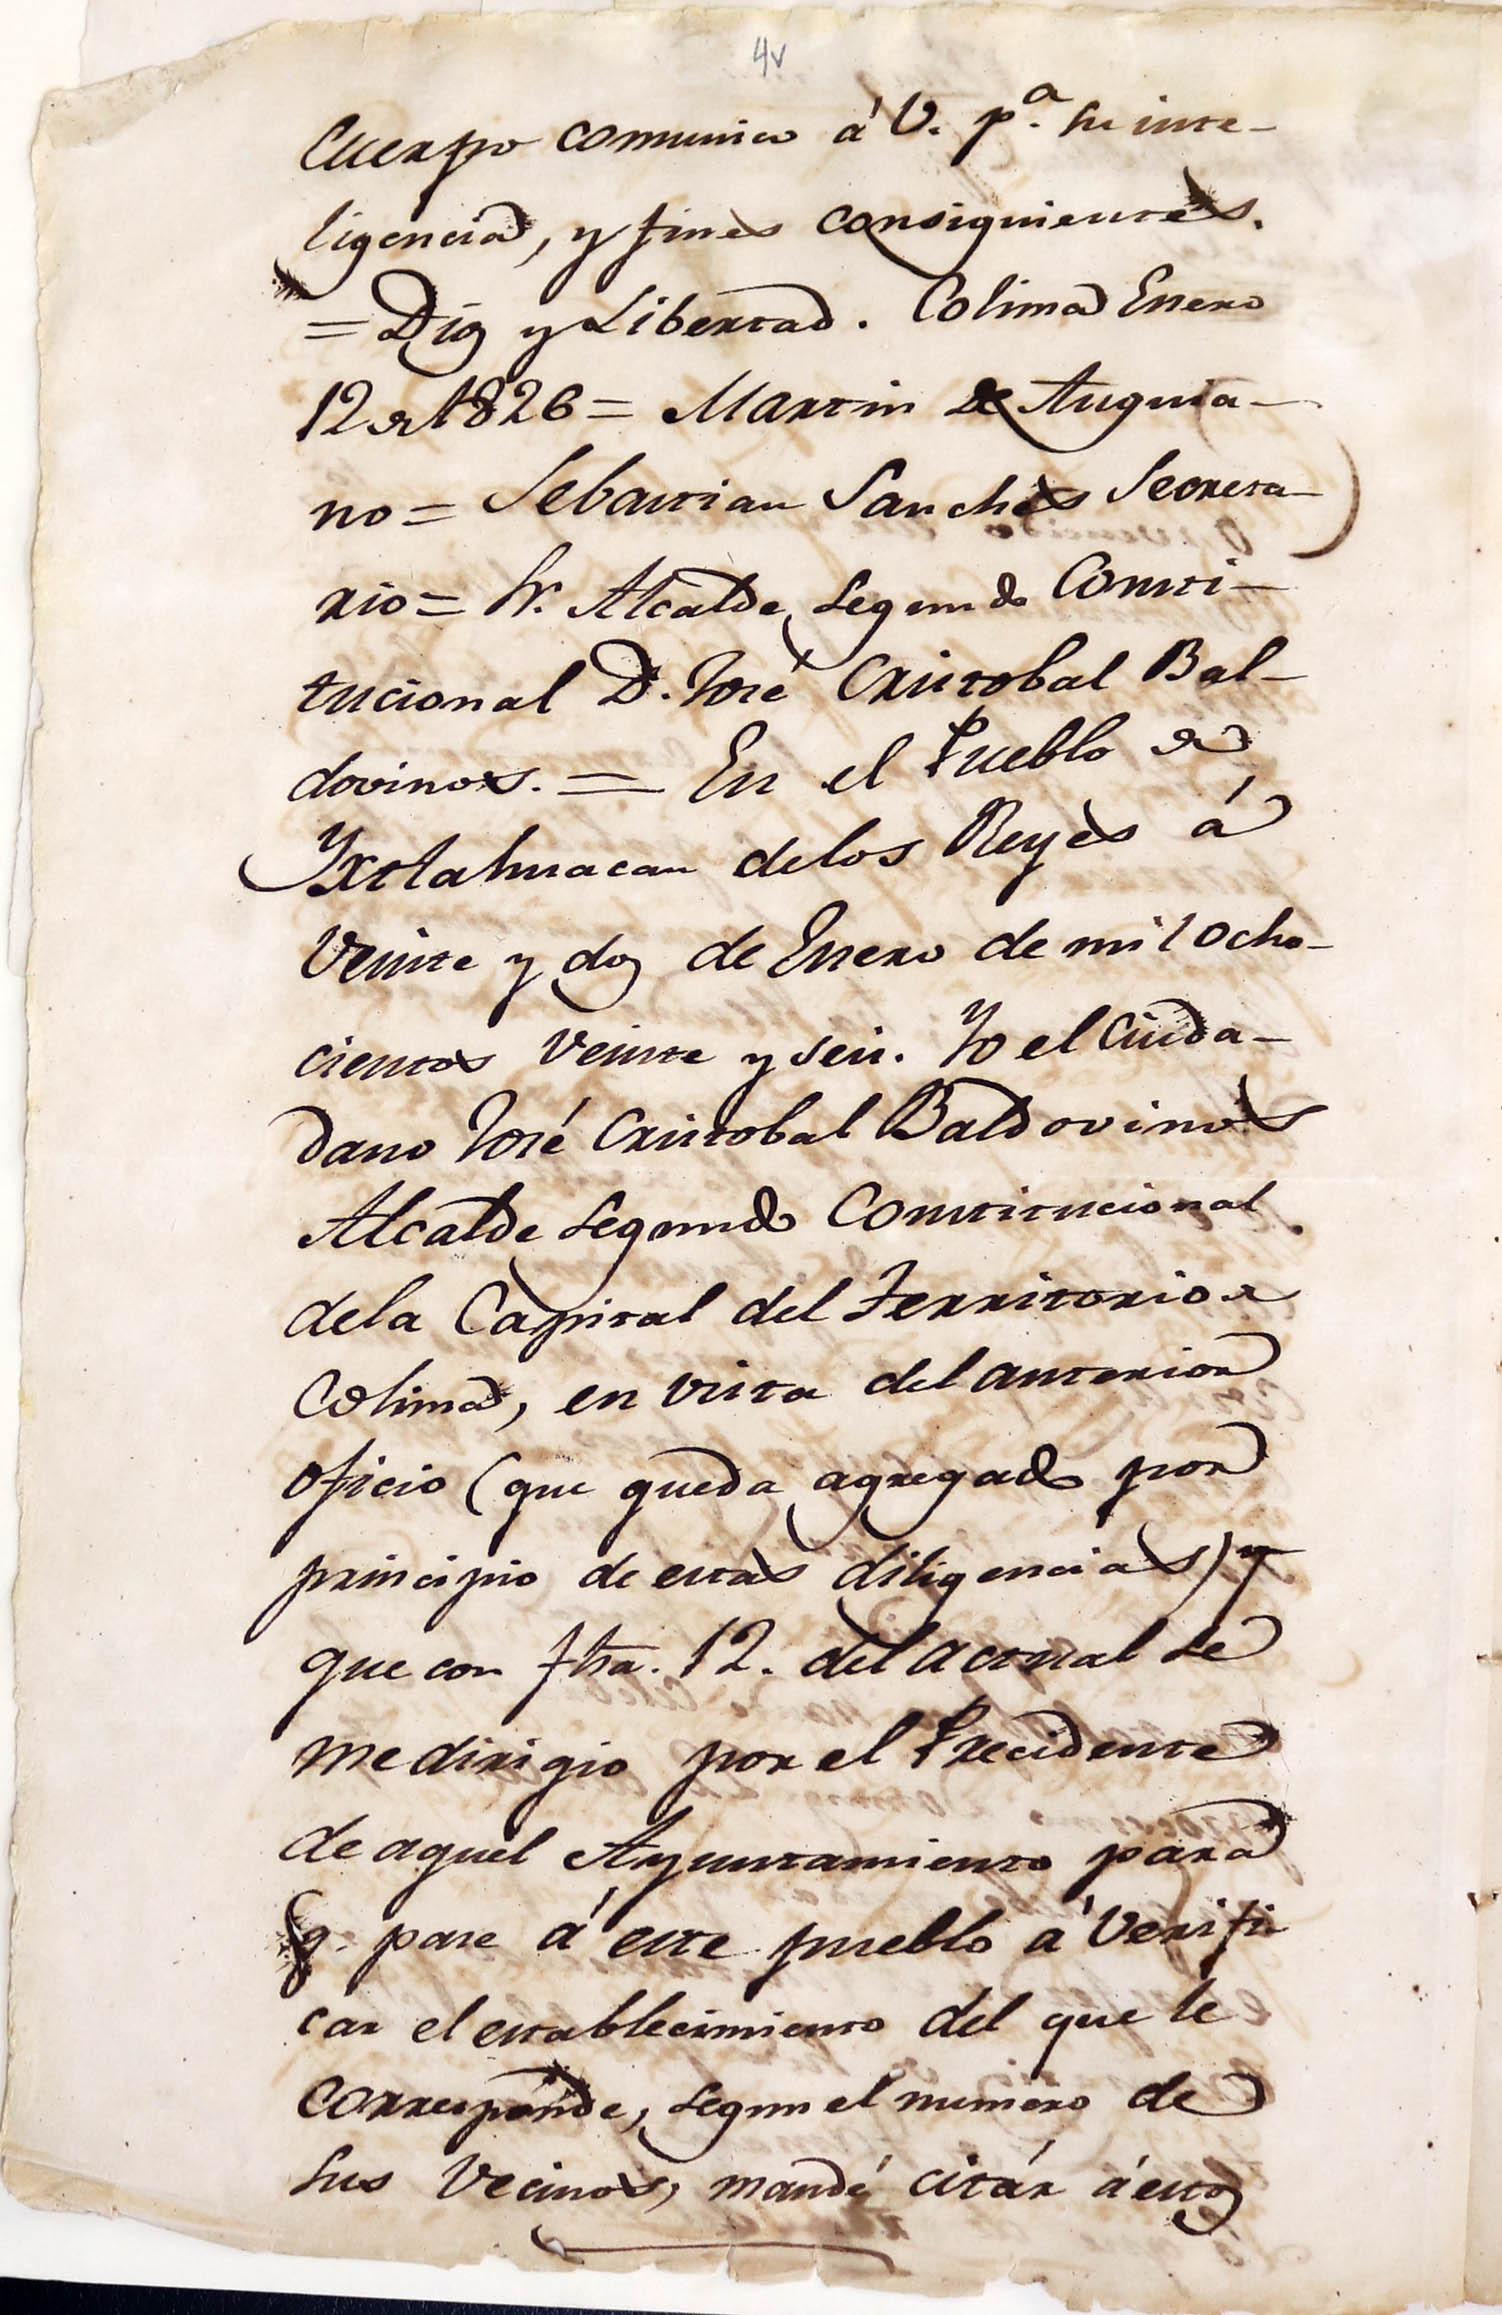 4v
Cuerpo comunico á V. p.ª su inte-
ligencia, y fines consiguientes.
= Dios y Libertad. Colima Enero
12 de 1826 = Martin de Anguia-
no = Sebastian Sanches Secreta-
rio = Sr. Alcalde Segundo Consti-
tucional D. José Cristobal Bal-
dovinos. = En el Pueblo de
Yxtlahuacan delos Reyes á
Veinte y dos de Enero de mil ocho-
cientos Veinte y seis. Yo el Ciuda-
dano José Cristobal Baldovinos
Alcalde Segundo Constitucional
dela Capital del Territorio de
Colima, en vista del anterior
oficio (que queda agregado por
principio de estas diligencias) y
que con fha. 12. del actual se
me dirigio por el Precidente
de aquel Ayuntamiento para
q. pase á este pueblo á Verifi
car el establecimiento del que le
corresponde, segun el numero de
sus Vecinos, mandé citár á estos